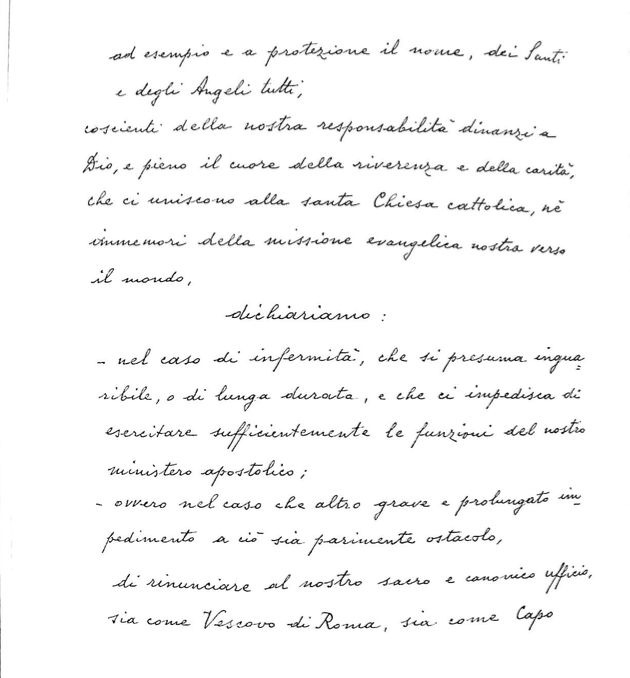 ad esempio e a protezione il nome, dei Santi
e degli Angeli tutti,
coscienti della nostra responsabilità dinanzi a
Dio, e pieno il cuore della riverenza e della carità,
che ci uniscono alla santa Chiesa cattolica, nè
immemori della missione evangelica nostra verso
il mondo,
dichiariamo:
- nel caso di infermità, che si presuma ingua=
ribile, o di lunga durata, e che ci impedisca di
esercitare sufficientemente le funzioni del nostro
ministero apostolico;
- ovvero nel caso che altro grave e prolungato im=
pedimento a ciò sia parimente ostacolo,
di rinunciare al nostro sacro e canonico ufficio,
sia come Vescovo di Roma, sia come Capo